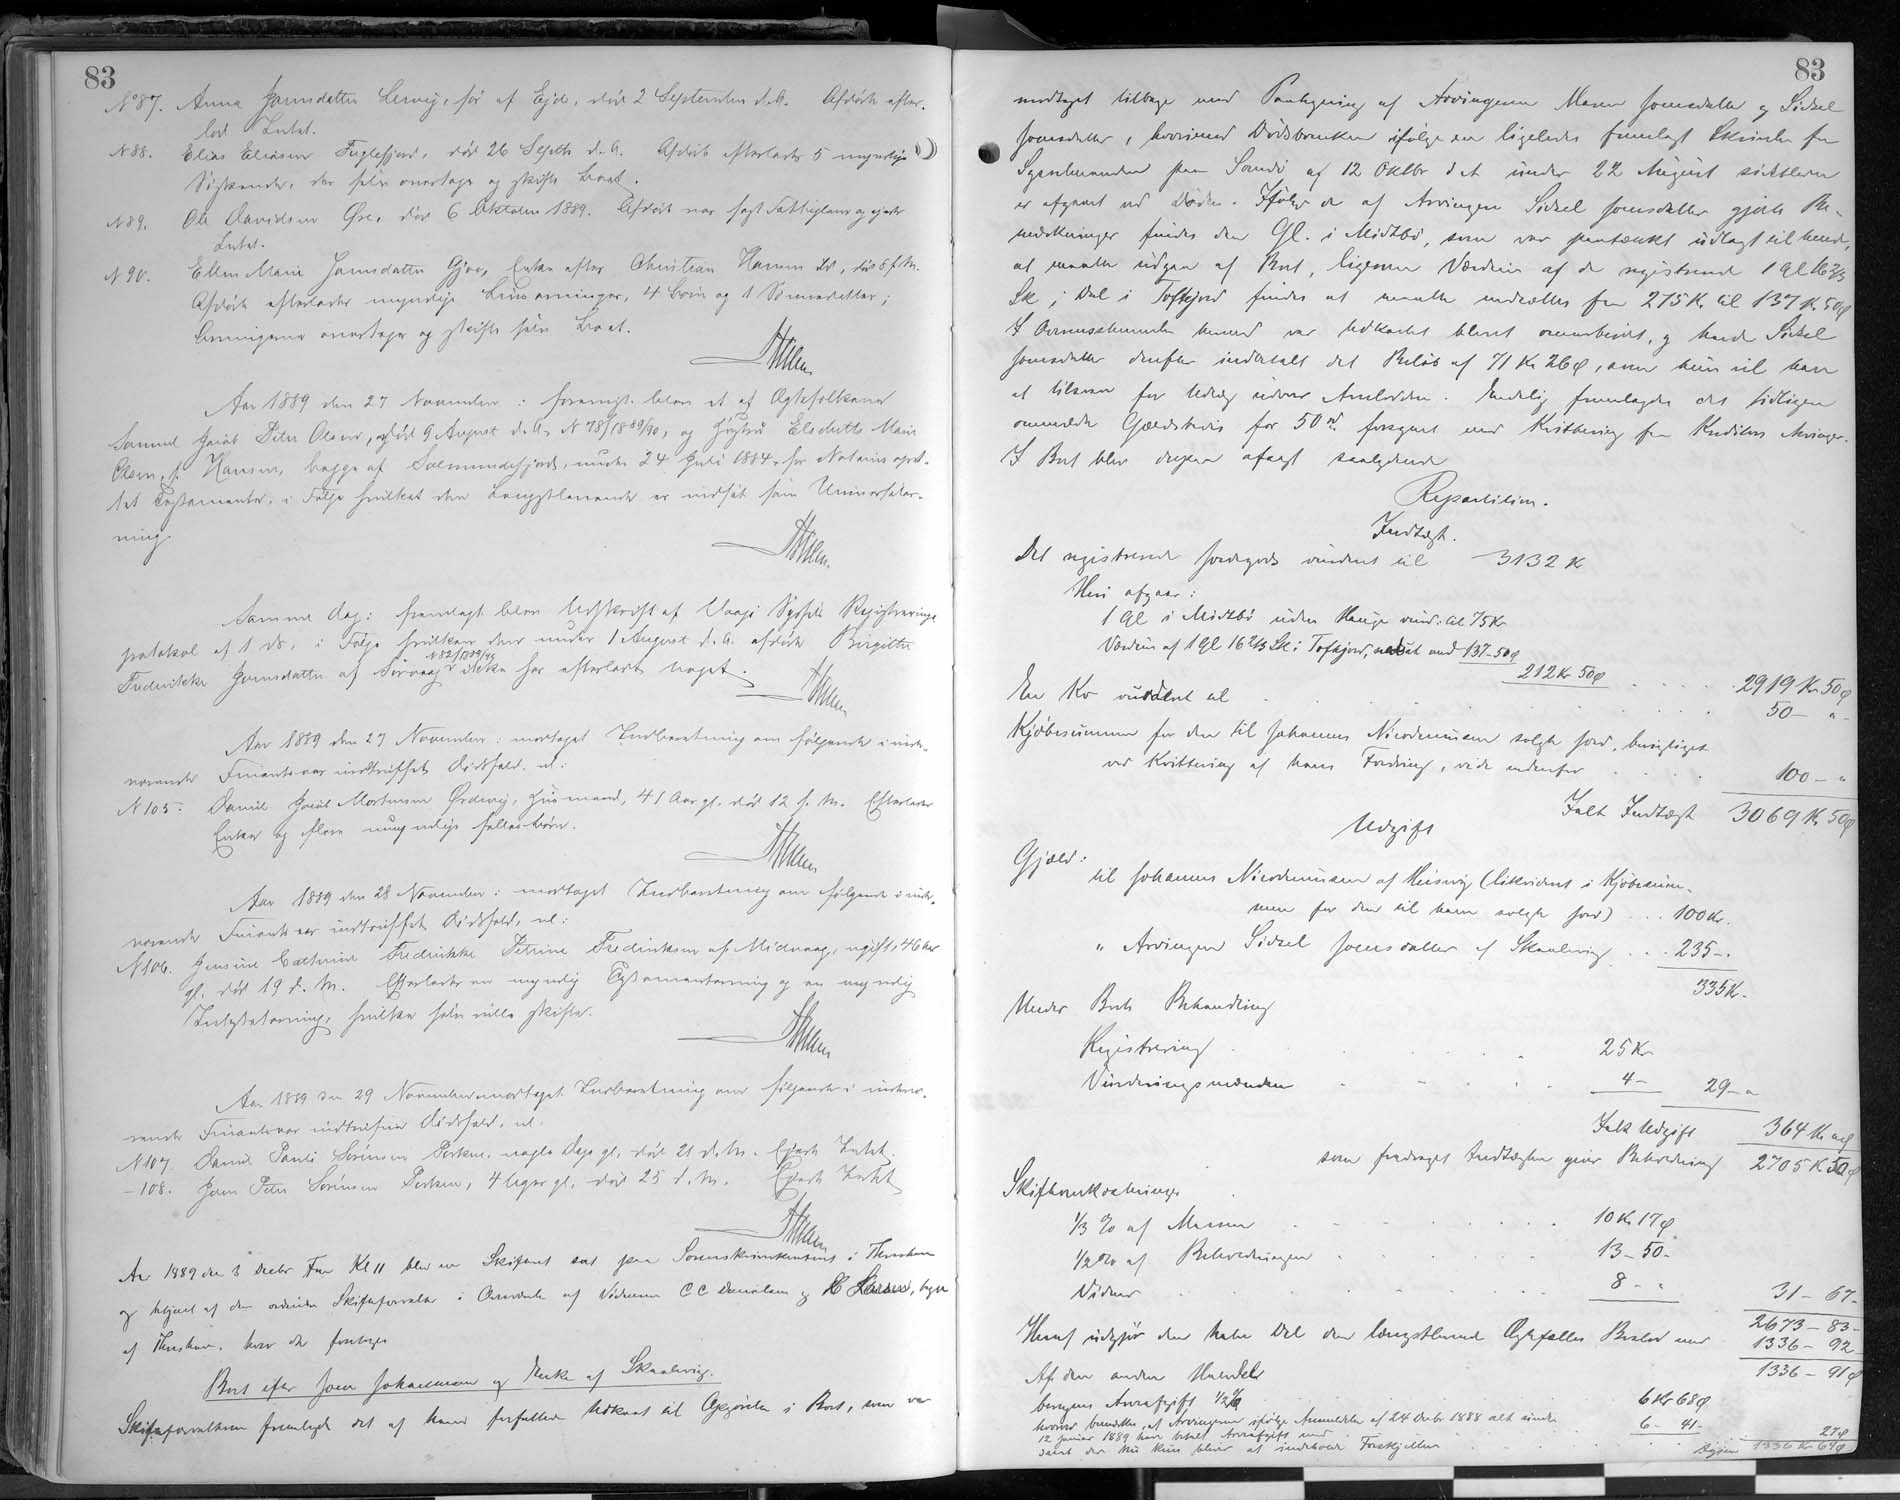 83
No 87. Anna Joensdatter Lervig, før af Ejde, død 2 September d. A. Afdøde efter-
lod Intet.
N 88. Elias Eliasen Fuglefjord, død 26 Septbr d. A. Afdøde efterlader 5 myndige
Søskende, der selv overtage og skifte Boet.
N 89. Ole Davidsen Øre, død 6 Oktober 1889. Afdøde var sagt Fattiglem og ejede
Intet.
N 90. Ellen Marie Joensdatter Gjov, Enke efter Christian Hansen
Afdøde efterlader myndige Livsarvinger, 4 Børn og 1 Sønnedatter;
Arvingerne overtage og skifte selv Boet.
Aar 1889 den 27 November: foreviist blev et af Ægtefolkene
Samuel Jacob Peter Olsen, død 9 August d. A. N 78/1889/90, og Hustru Elsebeth Marie
Olsen, f. Hansen, begge af Solmundefjord, under 24 Juli 1884 for Notarius opret-
tet Testamente, i Følge hvilket den Længstlevende er indsat som Universalar-
ving.
Samme Dag: fremlagt blev Udskrift af Vaagø Syssels Registrerings-
protokol af 1 ds, i Følge hvilken den under 1 August d. A. afdøde Birgitte
N 82/1889/90
Fredrikke Joensdatter af Sørvaag ikke har efterladt noget.
Aar 1889 den 27 November: modtaget Indberetning om følgende i inde-
værende Finantsaar indtruffet Dødsfald, nl:
N 105. Daniel Jacob Mortensen Ørdevig, Huusmand, 41 Aar gl. død 12 d. M. Efterlader
Enke og flere umyndige fælles Børn.
Aar 1889 den 28 November: modtaget Indberetning om følgende i inde-
værende Finantsaar indtruffet Dødsfald, nl:
N 106. Jensine Cathrine Fredrikke Petrine Fredriksen af Midvaag, ugift, 46 Aar
gl. død 19 d. M. Efterlader en myndig Testamentarving og en myndig
Intestatarving, hvilke selv ville skifte.
Aar 1889 den 29 November modtaget Indberetning om følgende i indevæ-
rende Finantsaar indtrufne Dødsfald, nl.
N 107. Daniel Pauli Sørensen Porkere, nogle Dage gl. død 21 d. M. Ejede Intet.
- 108. Joen Peter Sørensen Porkere, 4 Uger gl. død 25 d. M. Ejede Intet
Aar 1889 den 3 Decbr Fm Kl 11 blev en Skifteret sat paa Sorenskriverkontoret i Thorshavn
og betjent af den ordinære Skifteforvalter i Overværelse af Vidnerne C C Danielsen og H C Larsen, begge
af Thorshavn. hvor da foretoges
Boet efter Joen Johannesen og Enke af Skaalevig.
Skifteforvalteren fremlagde det af ham forfattede Udkast til Opgjørelse i Boet, som var
83
modtaget tilbage med Paategning af Arvingerne Maren Joensdatter og Sidsel
Joensdatter, hvorimod Dødsbanken ifølge en ligeledes fremlagt Skrivelse fra
Sysselmanden paa Sandø af 12 Oktbr d A under 22 August sidstleden
er afgaaet ved Døden. Ifølge de af Arvingen Sidsel Joensdatter gjorte Be-
mærkninger findes den Gl. i Midtbø, som var paatænkt udlagt til hende,
at maatte udgaa af Boet, ligesom Værdien af de registrerede 1 Gl 16 2/3
Sk i Dal i Toftejord findes at maatte nedsættes fra 275 Kr til 137 Kr 50 Ø
I Overensstemmelse hermed var Udkastet blevet omarbeidet, og havde Sidsel
Joensdatter derefter indbetalt det Beløb af 71 Kr 26 Ø, som hun vil have
at tilsvare for Udlæg udover Arvelodden. Endelig fremlagdes det tidligere
ommeldte Gjældsbevis for 50 rd. forsynet med Kvittering fra Kreditors Arvinger.
I Boet blev derpaa afsagt saalydende
Repartition.
Indtægt.
Det registrerede Jordegods vurderet til 3132 K
Heri afgaar:
1 Gl i Midtbø uden Hauge vurd. til 75 Kr
Værdien af 1 Gl 16 2/3 Sk i Toftejord, nedsat med 137-50 Ø
212 Kr 50 Ø . . . . . 2919 Kr. 50 Ø
En Ko vurderet til . . . . . 50 - " -
Kjøbesummen for den til Johannes Nicodemusen solgte Jord, berigtiget
ved Kvittering af hans Fordring, vide nedenfor . . . . 100 - "
Ialt Indtægt 3069 Kr 50 Ø
Udgift
Gjæld:
til Johannes Nicodemusen af Husevig (likvideret i Kjøbesum-
men for den til ham solgte Jord) . . . 100 Kr.
" Arvingen Sidsel Joensdatter af Skaalevig . . . 235 - .
335 K.
Under Boets Behandling
Registrering . . . . 25 Kr
Vurderingsmænden . . . . 4 - 29 - "
Ialt Udgift 364 Kr
som fradraget Indtægten giver Beholdning 2705 K 50 Ø
Skifteomkostninger
1/3 % af Massen . . . . 10 Kr. 17 Ø
1/2 % af Beholdningen . . . . 13 - 50 -
Vidner . . . . 8 - " 31 - 67 -
2673 - 83 -
Heraf udgjør den halve Del den længstlevende Ægtefælles Boslod med 1336 - 92
1336 - 91 Ø
Af den anden Halvdel
beregnes Arveafgift 1/2 % 6 Kr 68 Ø
hvorved bemærkes, at Arvingerne ifølge Anmeldelse af 24 Decbr 1888 alt under
12 Januar 1889 have betalt Arveafgift med . . . 6 - 41 -
saa at der nu kun bliver at indbetale Forskjellen . . . . 27 Ø
1336 Kr 64 Ø